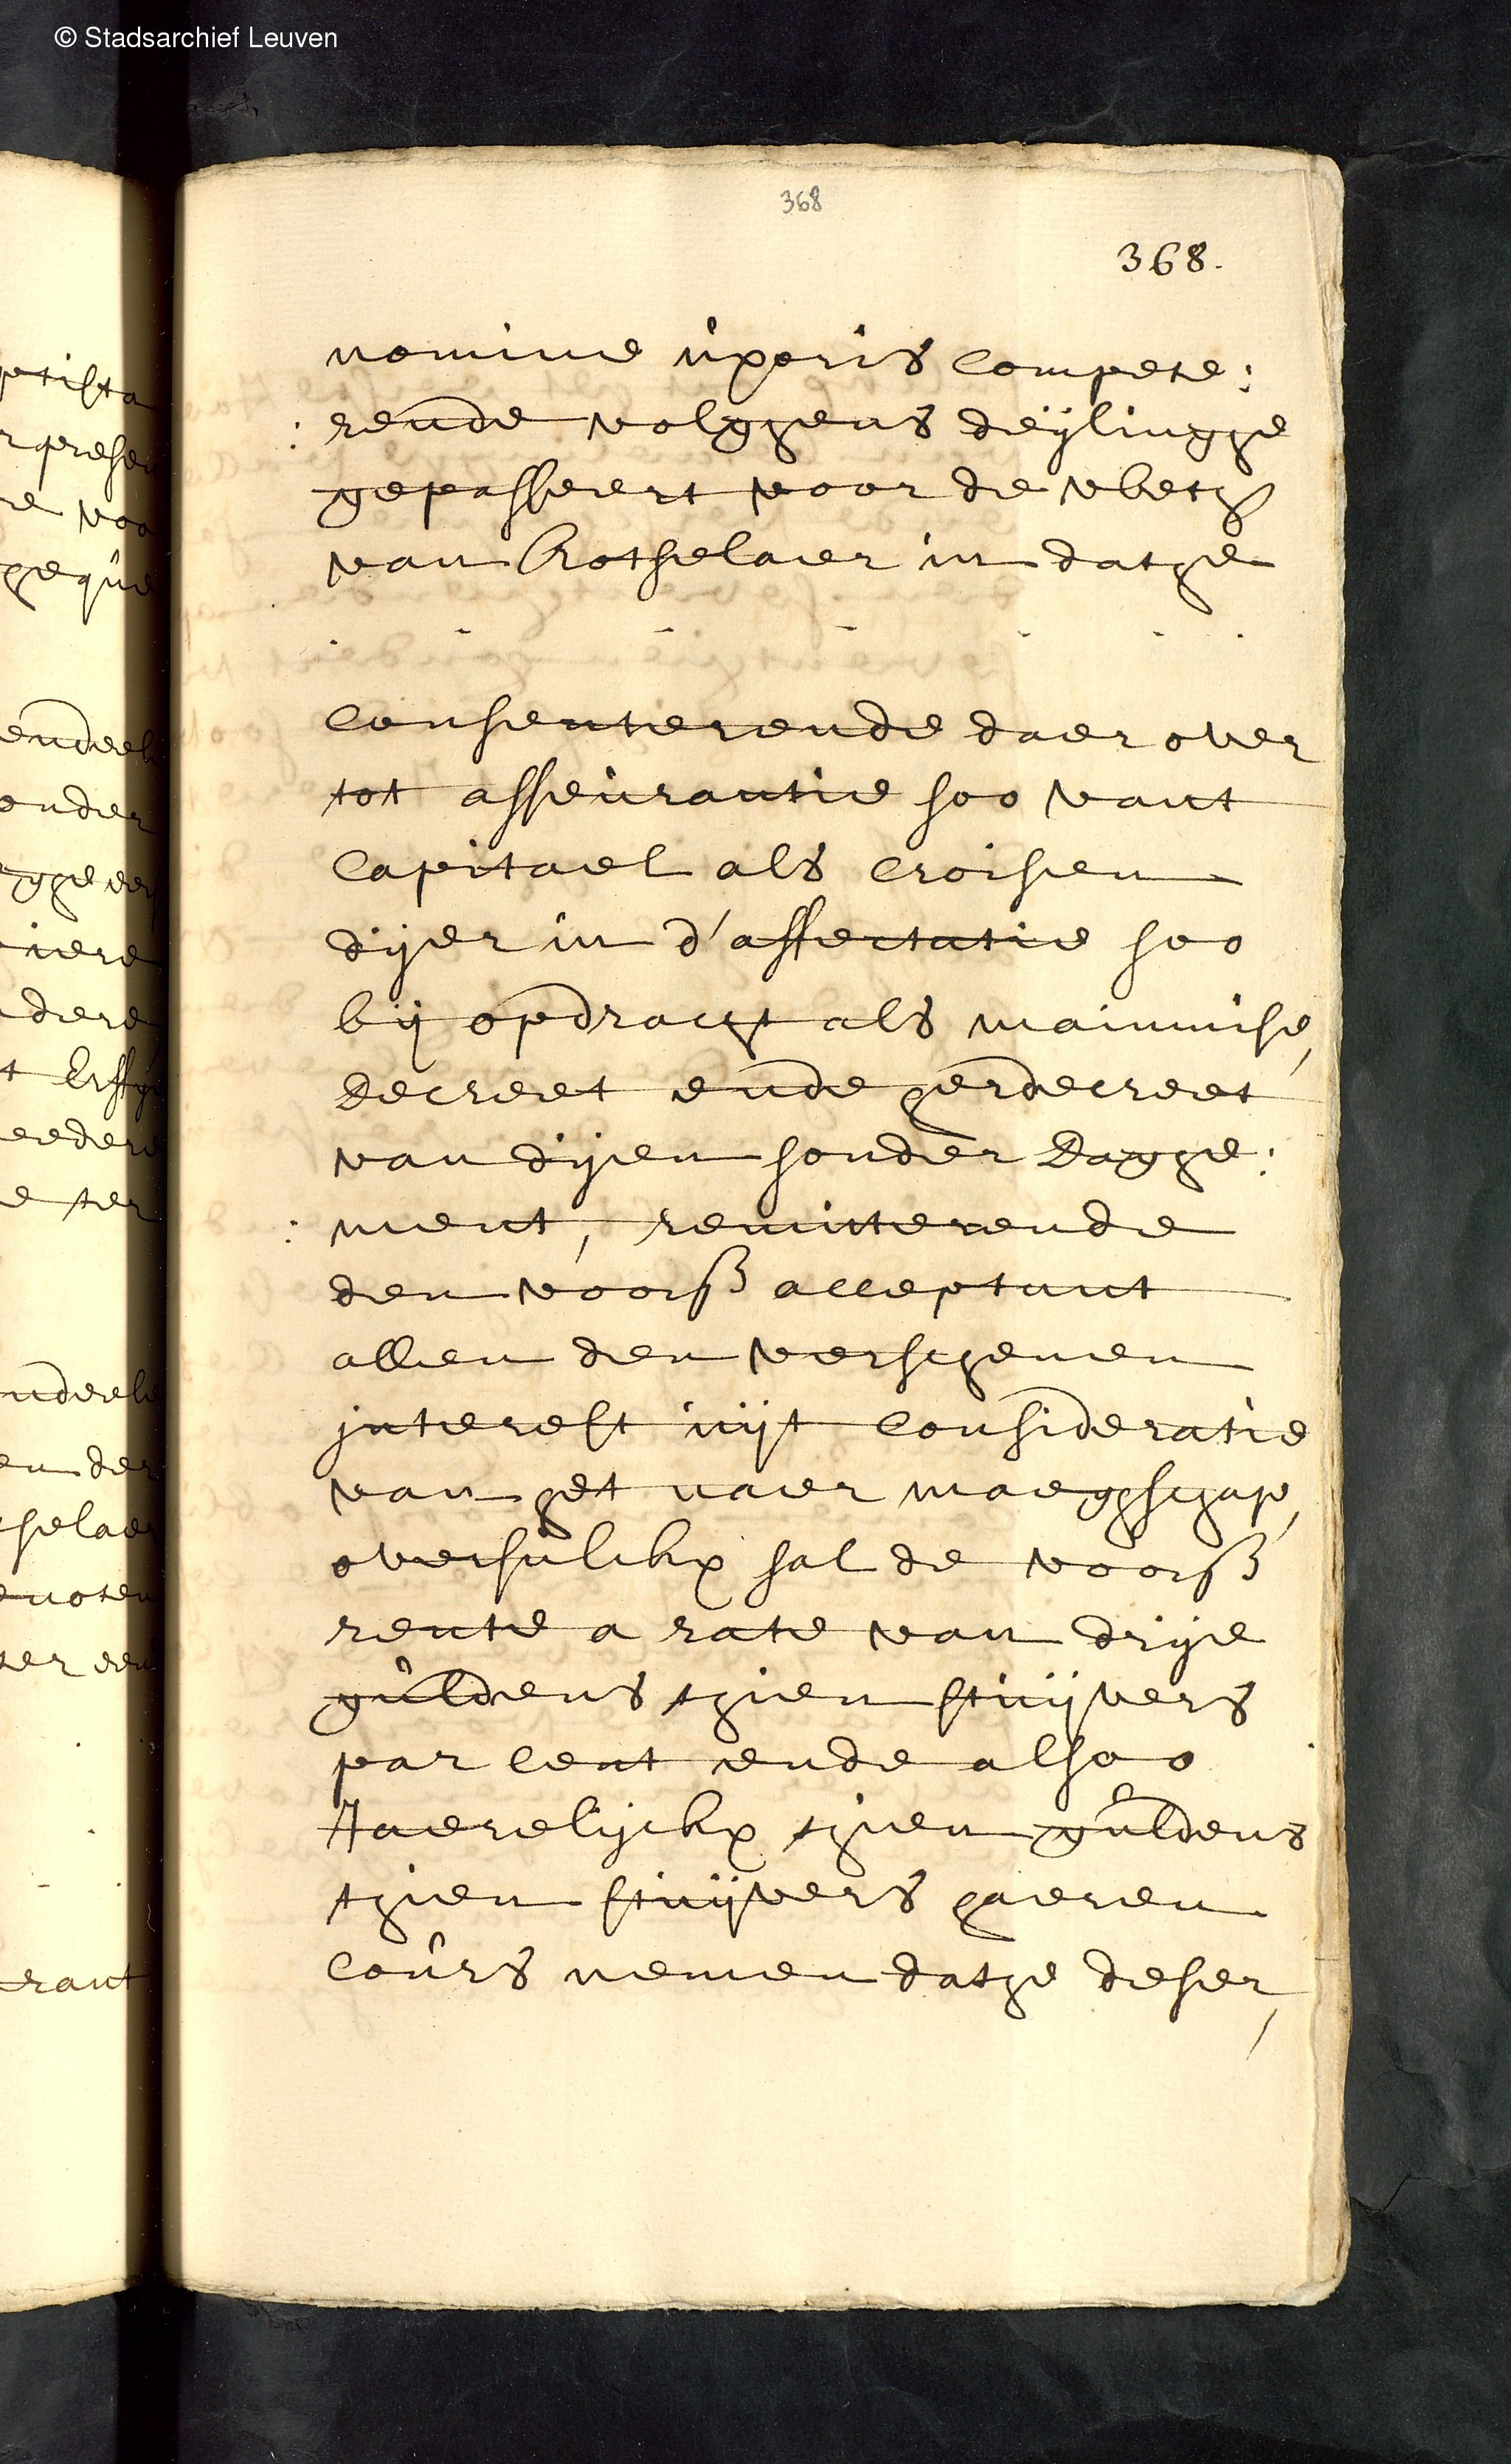 © Stadsarchief Leuven
368
368.
nomine uxoris compete:
:rende volghens deijlinghe
gepasseert voor de wbeth
van Rotselaer in dathe
- - - - - - -
Consenterende daer over
tot asseurantie soo vant
Capitael als croisen
dijer in d'affectatie soo
bij opdracht als mainmise,
Decreet ende herdecreet
van dijen sonder Daghe:
:ment, remitterende
den voorß acceptant
allen den verschenen
interest uijt consideratie
van het naer maeghschap,
oversulckx sal de voorß
rente a rate van drije
guldens thien stuijvers
par cent ende alsoo
Jaerelijckx thien guldens
thien stuijvers haeren
cours nemen dathe deser,